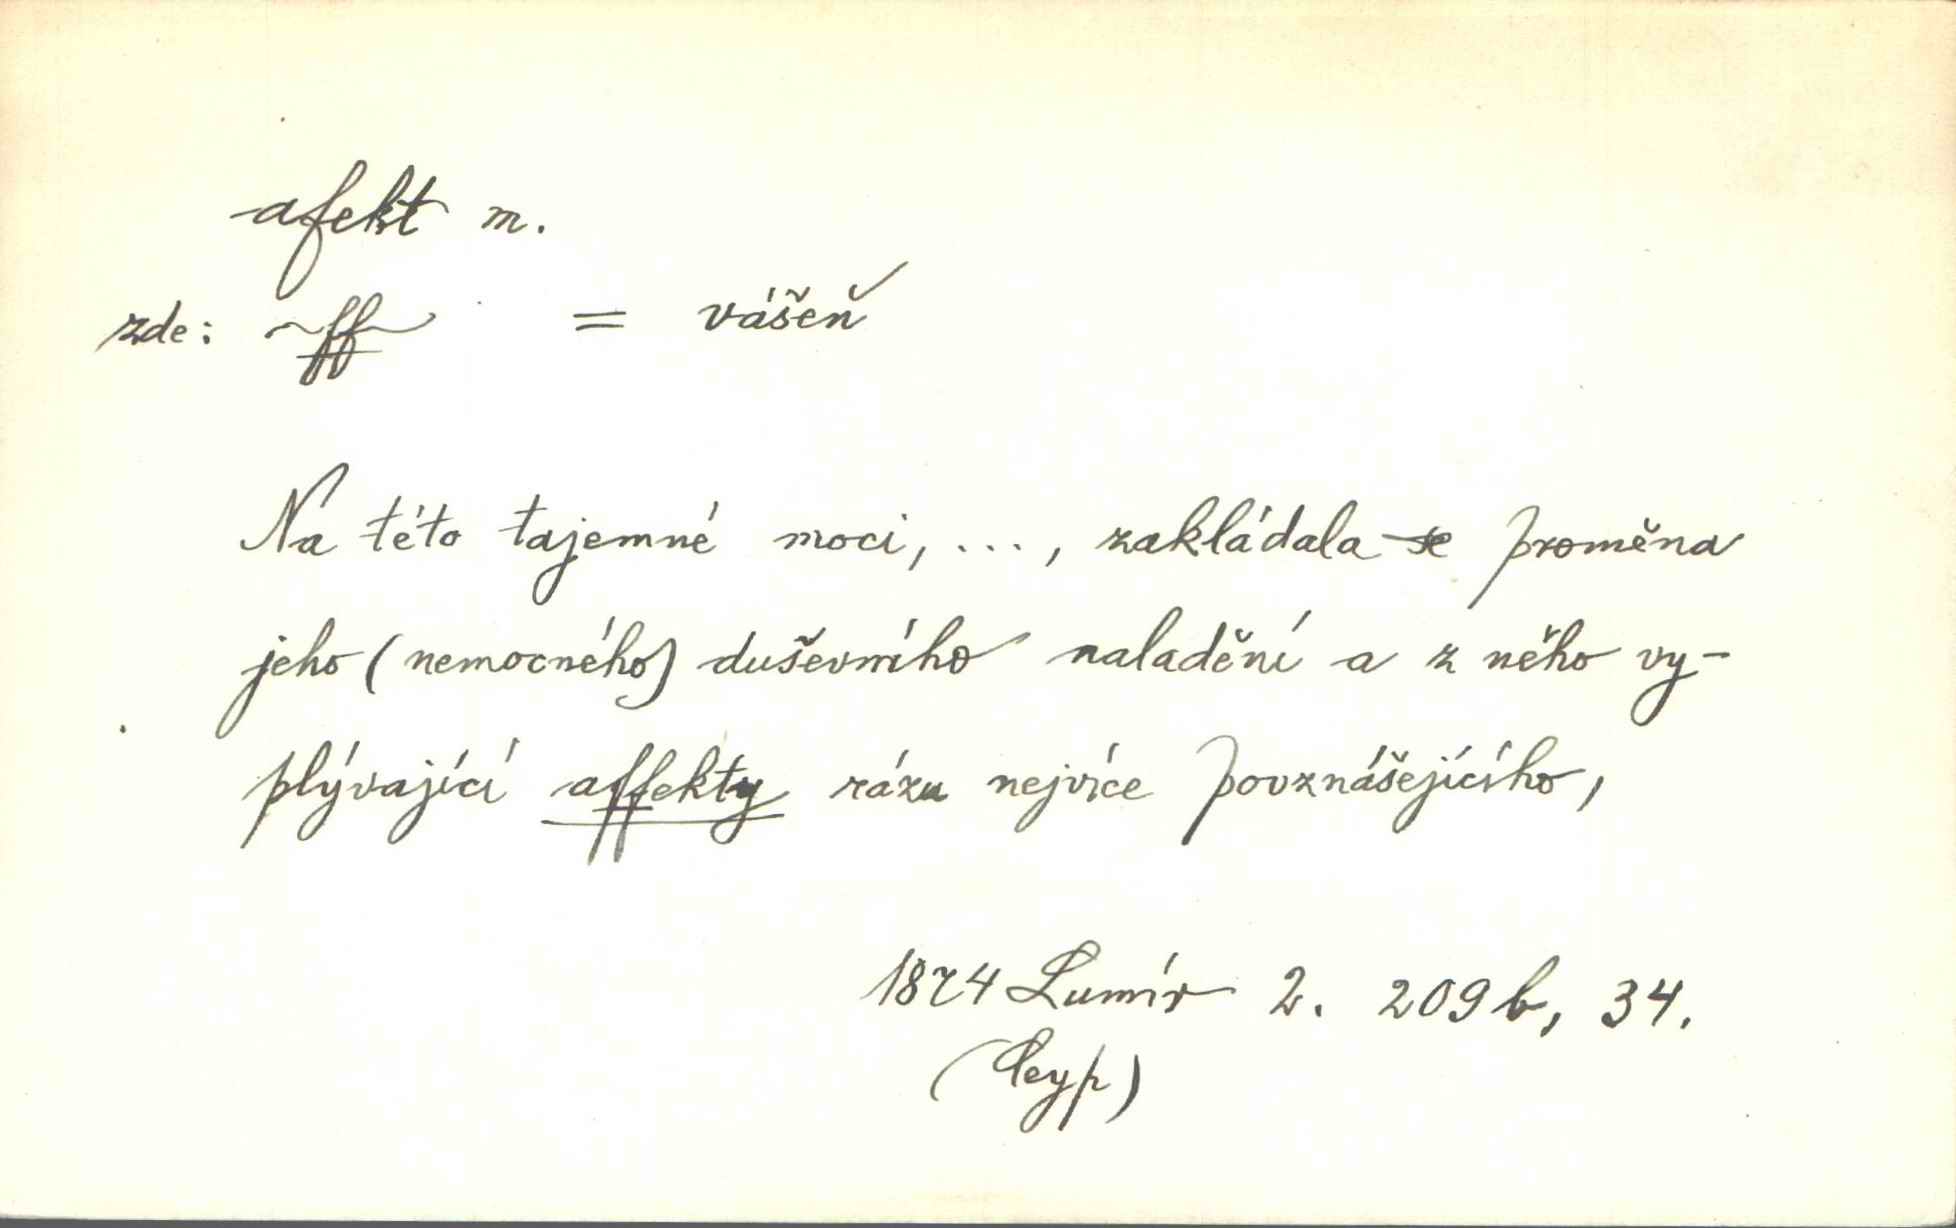 afekt m.
zde: ~ff~ = vášeň
Na této tajemné moci, ..., zakládala se proměna
jeho (nemocného) duševního naladění a z něho vy-
plývající affekty rázu nejvíce povznášejícího,
1874 Lumír 2. 209b, 34.